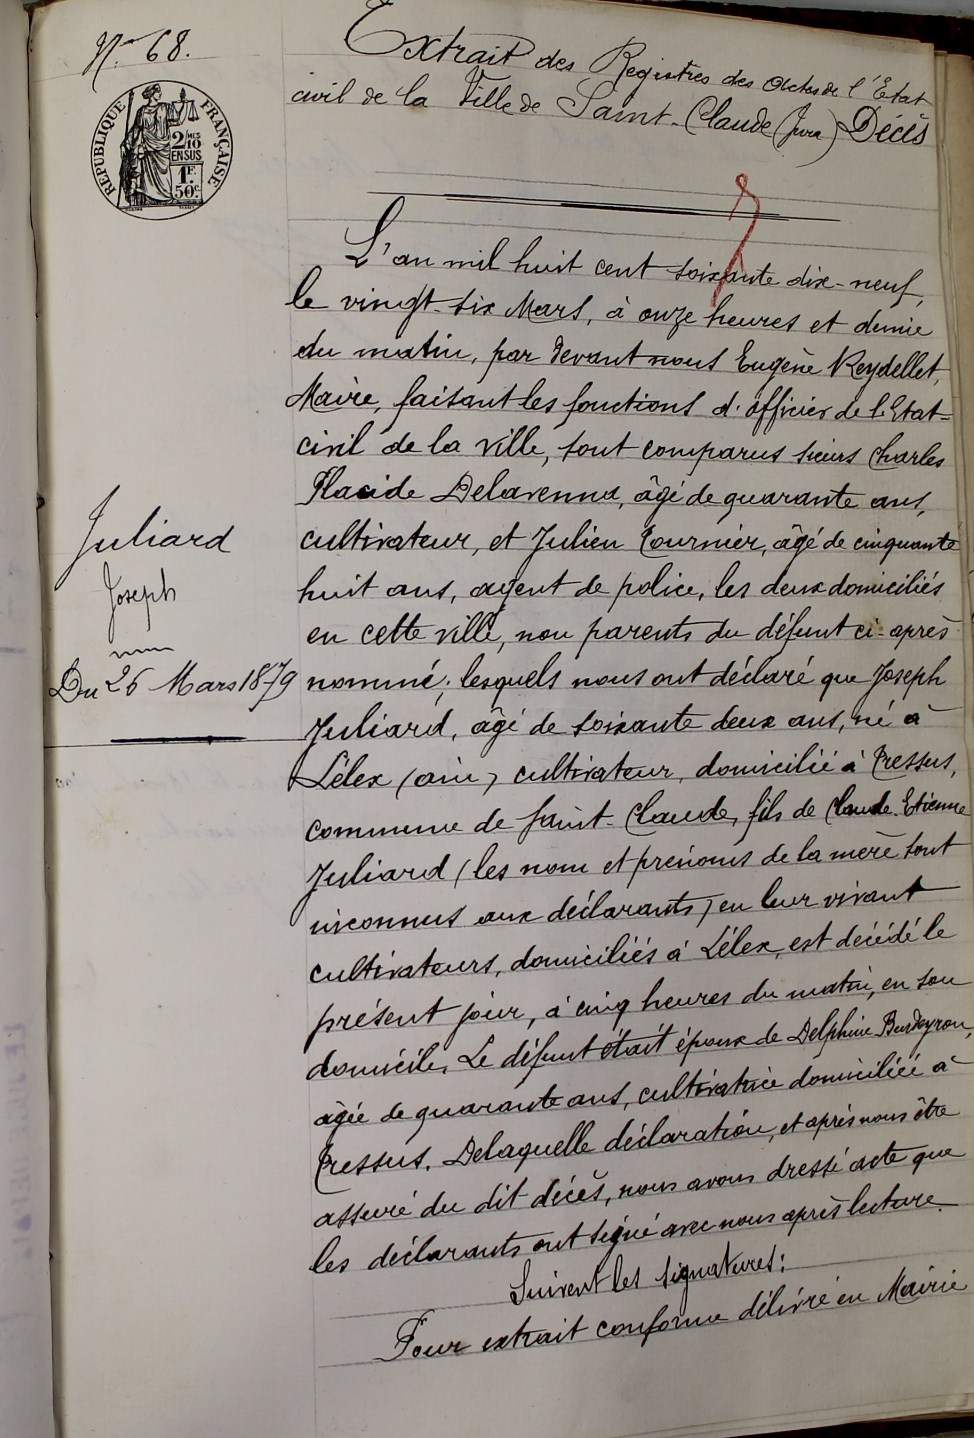 N.° 68.
RÉPUBLIQUE FRANÇAISE
2/10 MES
EN SUS
1F
50c.
Extrait des Registres des Actes de l'Etat
civil de la Ville de Saint-Claude (Jura) Décès
L'an mil huit cent soixante dix-neuf,
le vingt-six Mars, à onze heures et demie
du matin, par devant nous Eugène Reydellet,
Maire, faisant les fonctions d'officier de l'Etat-
civil de la ville, sont comparus sieurs Charles
Placide Delavenna, âgé de quarante ans,
cultivateur, et Julien Tournier, âgé de cinquante
huit ans, agent de police, les deux domiciliés
en cette ville, non parents du défunt ci-après
nommé; lesquels nous ont déclaré que Joseph
Juliard, âgé de soixante deux ans, né à
Lélex (ain) cultivateur, domicilié à Cressus,
commune de Saint-Claude, fils de Claude-Etienne
Juliard (les nom et prénoms de la mère sont
inconnus aux déclarants) en leur vivant
cultivateurs, domiciliés à Lélex, est décédé le
présent jour, à cinq heures du matin, en son
domicile. Le défunt était époux de Delphine
âgée de quarante ans, cultivatrice domiciliée à
Cressus. De laquelle déclaration, et après nous être
assuré du dit décès, nous avons dressé acte que
les déclarants ont signé avec nous après lecture.
Suivent les signatures:
Pour extrait conforme délivré en Mairie
Juliard
Joseph
Du 26 Mars 1879